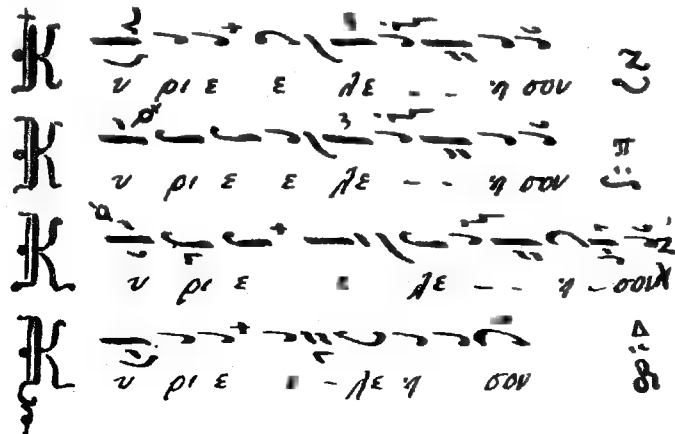 Κ υ ρι ε ε λε - - η σον
Κ υ ρι ε ε λε - - η σον π
Κ υ ρι ε ε λε - - η - σον
Κ υ ρι ε ε - λε η σον Δ